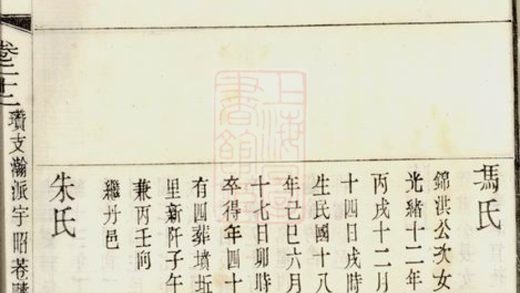 馮氏
錦洪公次女
光緒十二年
丙戌十二月
十四日戌時
生民國十八
年己巳六月
十七日卯時
卒得年四十
有四葬墳坵
里新阡子午
兼丙壬向
繼丹邑
朱氏
瓚支瀚派宇昭卷
上海
書館